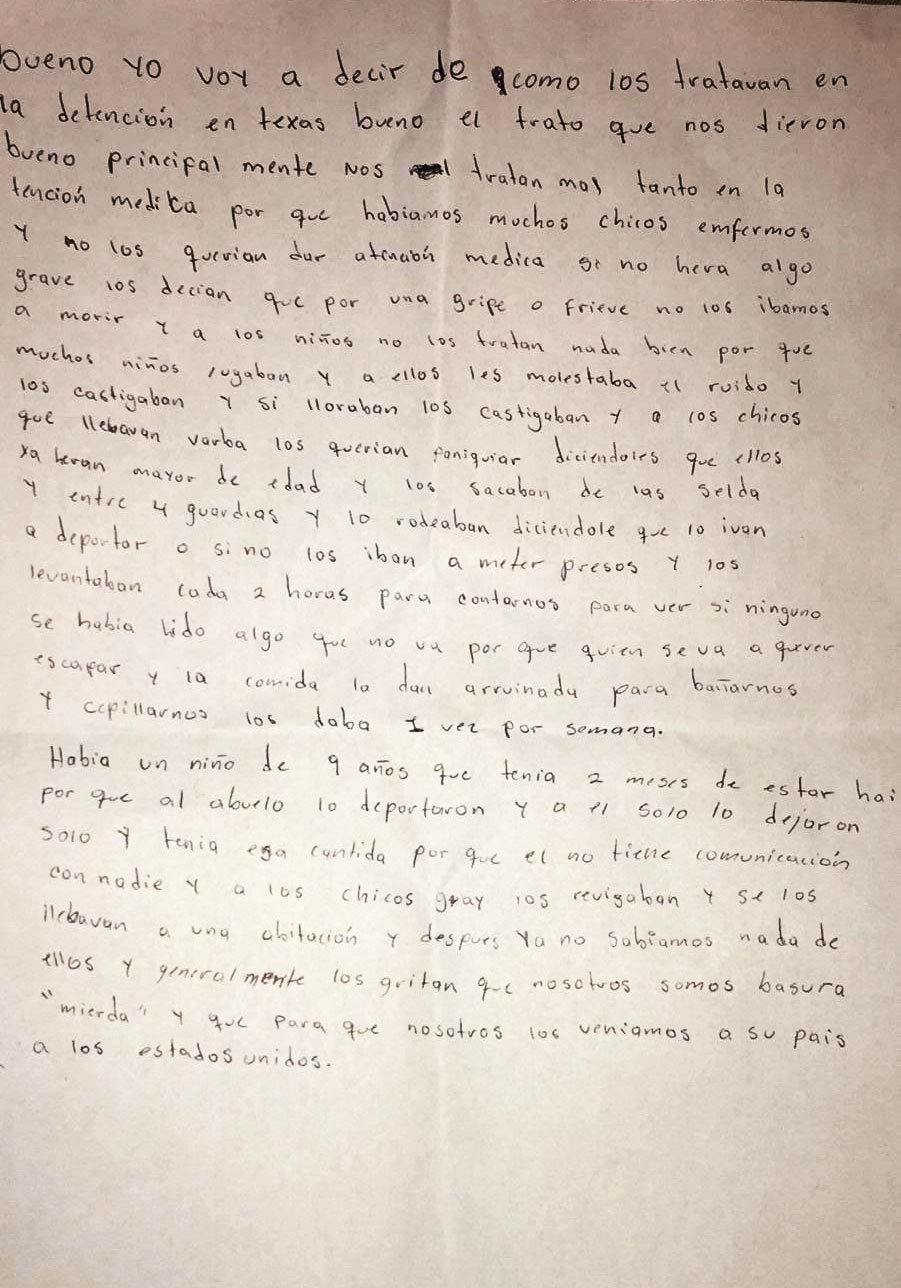 bueno yo voy a decir de como los tratavan en
la detención en texas bueno el trato que nos dieron
bueno principal mente nos tratan mal tanto en la
tención medica por que habiamos muchos chicos emfermos
y no los querian dar atención medica si no hera algo
grave los decian que por una gripe o frieve no los ibamos
a morir y a los niños no los tratan nada bien por que
muchos niños jugaban y a ellos les molestaba el ruido y
los castigaban y si lloraban los castigaban y a los chicos
que llebavan varba los querian paniquiar diciendoles que ellos
ya heran mayor de edad y los sacaban de las selda
y entre 4 guardias y lo rodeaban diciendole que lo ivan
a deportar o si no los iban a meter presos y los
levantaban cada 2 horas para contarnos para ver si ninguno
se habia hido algo que no va por que quien se va a querer
escapar y la comida la dan arruinada para bañarnos
y cepillarnos los daba 1 vez por semana.
Habia un niño de 9 años que tenia 2 meses de estar hai
por que al abuelo lo deportaron y a el solo lo dejaron
solo y tenia esa cantida por que el no tiene comunicación
con nadie y a los chicos gray los revigaban y se los
llebavan a una abitación y despues ya no sabiamos nada de
ellos y general mente los gritan que nosotros somos basura
"mierda" y que para que nosotros los veniamos a su pais
a los estados unidos.